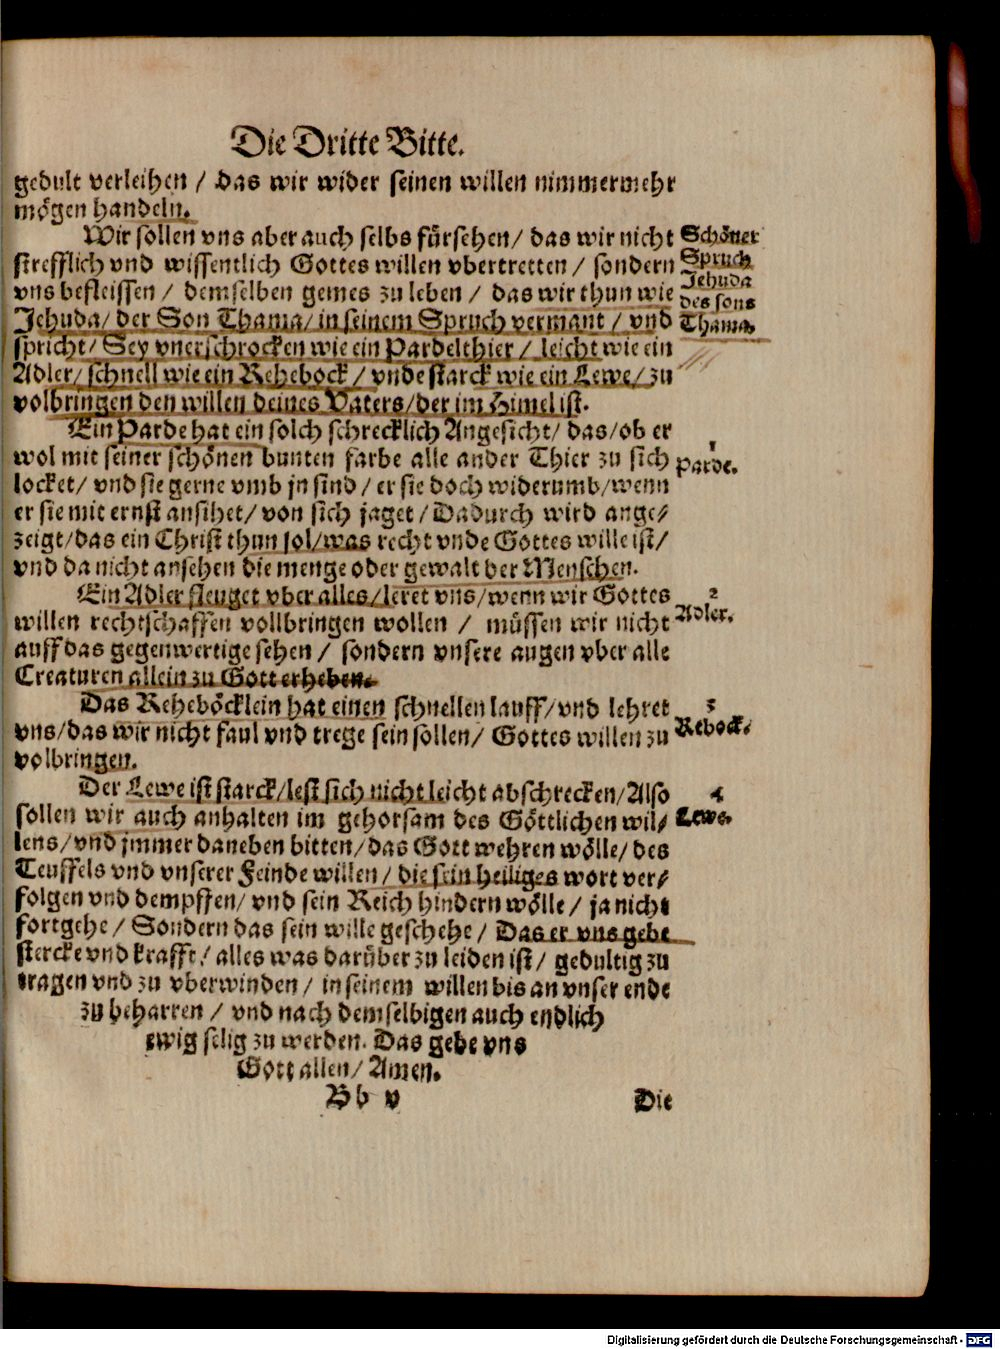 Die Dritte Bitte.
gedult verleihen / das wir wider seinen willen nimmermehr
mögen handeln.
Wir sollen vns aber auch selbs fürsehen/ das wir nicht
strefflich vnd wissentlich Gottes willen vbertretten / sondern
vns befleissen / demselben gemes zu leben / das wir thun wie
Jehuda/ der Son Thama/ in seinem Spruch vermant / vnd
spricht/ Sey vnerschrocken wie ein Pardelthier / leicht wie ein
Adler/ schnell wie ein Rehebock / vnde starck wie ein Lewe/ zu
volbringen den willen deines Vaters/ der im Himel ist.
Schöner
Spruch
Jehuda
des sons
Thama.
Ein Parde hat ein solch schrecklich Angesicht/ das/ ob er
wol mit seiner schönen bunten farbe alle ander Thier zu sich
locket/ vnd sie gerne vmb jn sind / er sie doch widerumb/ wenn
er sie mit ernst ansihet/ von sich jaget / Dadurch wird ange/
zeigt/ das ein Christ thun sol/ was recht vnde Gottes wille ist/
vnd da nicht ansehen die menge oder gewalt der Menschen.
1
Parde.
Ein Adler fleuget vber alles/ leret vns/ wenn wir Gottes
willen rechtschaffen vollbringen wollen / müssen wir nicht
auff das gegenwertige sehen / sondern vnsere augen vber alle
Creaturen allein zu Gott erheben.
2
Adler.
Das Reheböcklein hat einen schnellen lauff/ vnd lehret
vns/ das wir nicht faul vnd trege sein sollen/ Gottes willen zu
volbringen.
3
Rebock.
Der Lewe ist starck/ lest sich nicht leicht abschrecken/ Also
sollen wir auch anhalten im gehorsam des Göttlichen wil/
lens/ vnd jmmer daneben bitten/ das Gott wehren wölle/ des
Teuffels vnd vnserer Feinde willen / die sein heiliges wort ver/
folgen vnd dempffen/ vnd sein Reich hindern wölle / ja nicht
fortgehe / Sondern das sein wille geschehe / Das er vns gebe
stercke vnd krafft / alles was darüber zu leiden ist / gedultig zu
tragen vnd zu vberwinden / in seinem willen bis an vnser ende
zu beharren / vnd nach demselbigen auch endlich
ewig selig zu werden. Das gebe vns
Gott allen/ Amen.
4
Lewe.
Bb v
Die
Digitalisierung gefördert durch die Deutsche Forschungsgemeinschaft - DFG